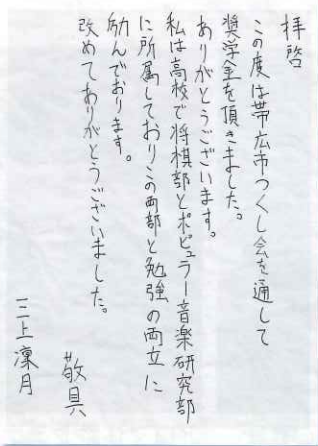 拝啓
この度は帯広市つくし会を通して
奨学金を頂きました。
ありがとうございます。
私は高校で将棋部とポピュラー音楽研究部
に所属しておりこの両部と勉強の両立に
励んでおります。
改めてありがとうございました。
敬具
三上凜月